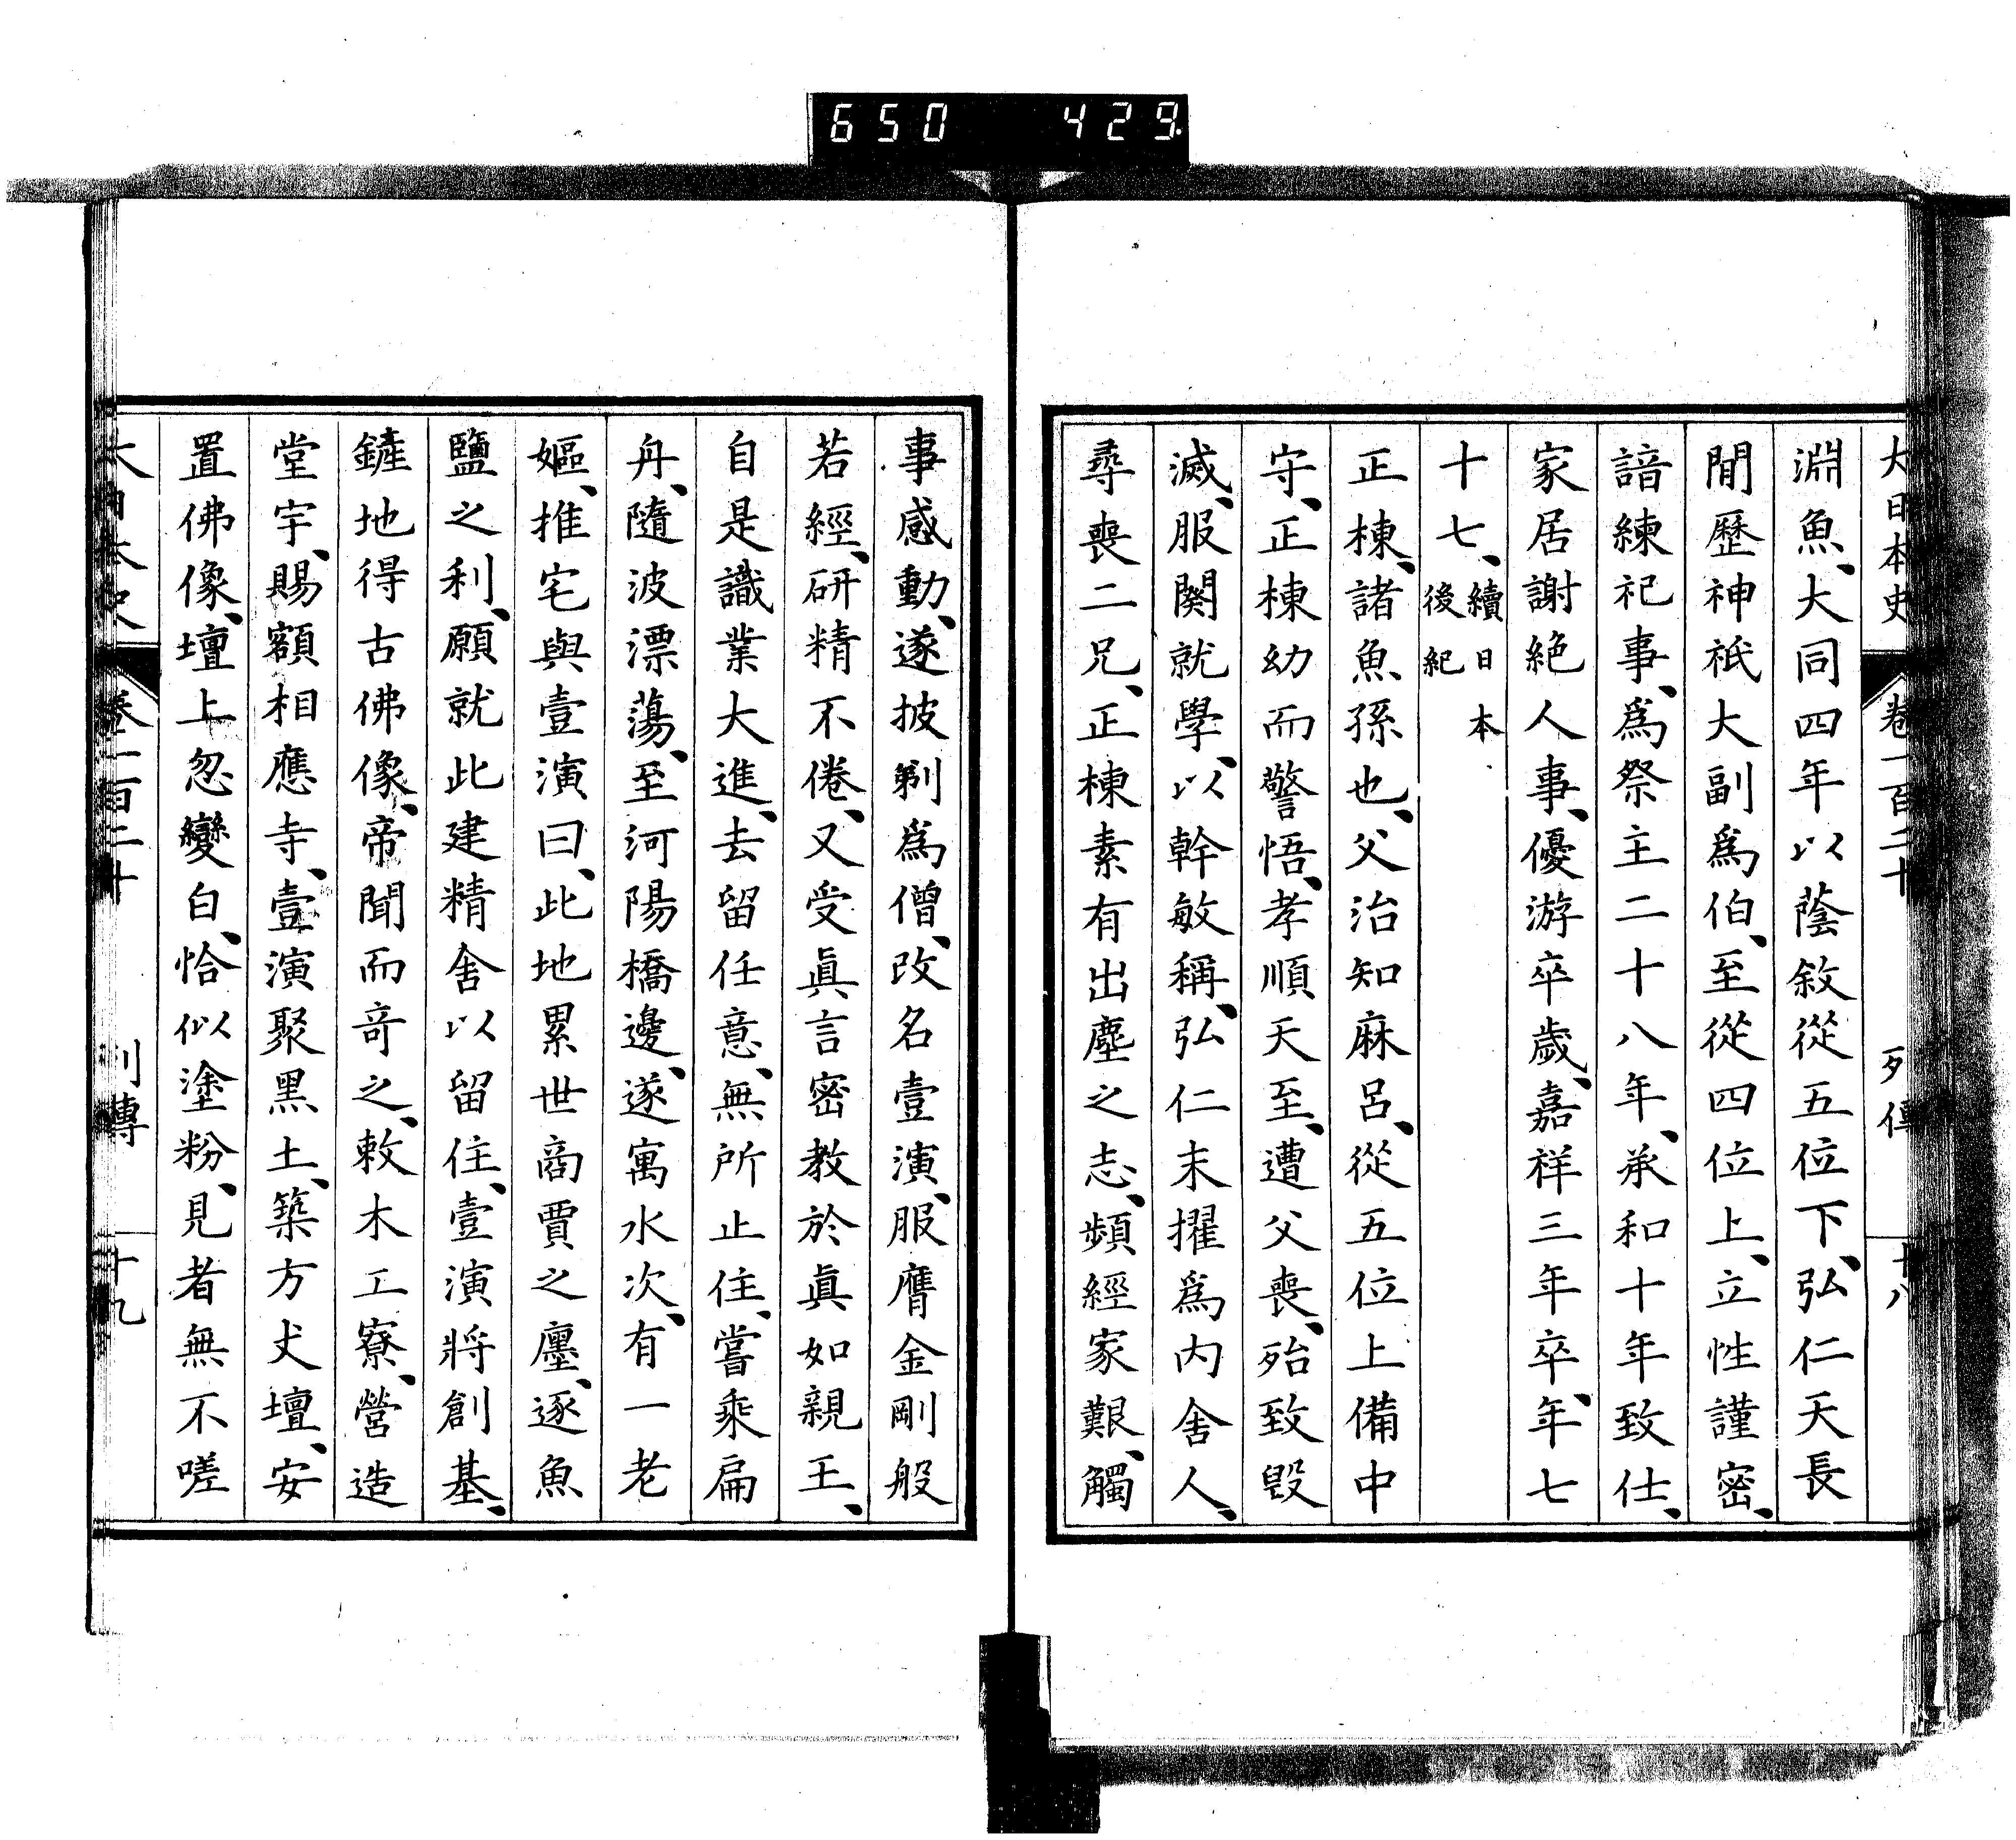 650 429
大日本史 卷一百二十 列傳 十八
淵魚、大同四年以蔭敘從五位下、弘仁天長
閒歷神祇大副爲伯、至從四位上、立性謹密、
諳練祀事、爲祭主二十八年、承和十年致仕、
家居謝絕人事、優游卒歲、嘉祥三年卒、年七
十七、續日本後紀
正棟、諸魚孫也、父治知麻呂、從五位上備中
守、正棟幼而警悟、孝順天至、遭父喪、殆致毀
滅、服闋就學、以幹敏稱、弘仁末擢爲內舍人、
尋喪二兄、正棟素有出塵之志、頻經家艱、觸
事感動、遂披剃爲僧、改名壹演、服膺金剛般
若經、研精不倦、又受眞言密教於眞如親王、
自是識業大進、去留任意、無所止住、嘗乘扁
舟、隨波漂蕩、至河陽橋邊、遂寓水次、有一老
嫗、推宅與壹演曰、此地累世商賈之廛、逐魚
鹽之利、願就此建精舍以留住、壹演將創基、
鏟地得古佛像、帝聞而奇之、敕木工寮、營造
堂宇、賜額相應寺、壹演聚黑土、築方丈壇、安
置佛像、壇上忽變白、恰似塗粉、見者無不嗟
大日本史 卷一百二十 列傳 十九